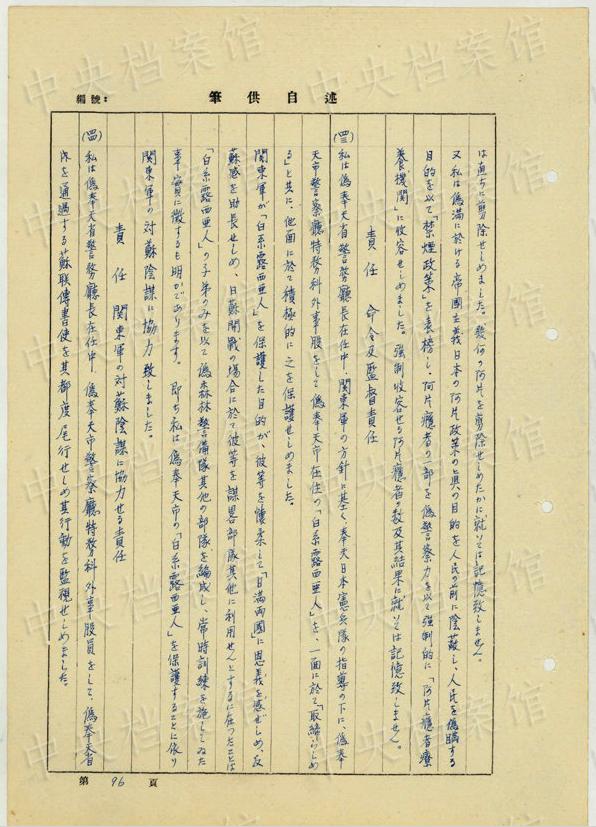 述自供筆
編號:
は直ちに剪除せしめました。幾何の阿片を剪除せしめたかに就いては記憶致しません。
又私は偽満に於ける帝國主義日本の阿片政策の真の目的を人民の前に陰蔽し、人民を偽瞞する
目的を以て「禁煙政策」を表榜し、阿片癮者の一部を偽警察力を以て強制的に「阿片癮者療
養機関」に收容せしめました。強制收容せる阿片癮者の数及其結果に就いては記憶致しません。
責任 命令及監督責任
(四三) 私は偽奉天省警務廳長在任中、関東軍の方針に基く、奉天日本憲兵隊の指導の下に、偽奉
天市警察廳特務科外事股をして偽奉天市在住の「白系露西亜人」を、一面に於て「取締らしめ
る」と共に、他面に於て積極的に之を保護せしめました。
関東軍が「白系露西亜人」を保護した目的が、彼等を懐柔して「日満両國」に恩義を感ぜしめ、反
蘇感を助長せしめ、日蘇開戦の場合に於て彼等を謀畧部隊其他に利用せんとするに在つたことは
「白系露西亜人」の子弟のみを以て偽森林警備隊其他の部隊を編成し、常時訓練を施してゐた
事實に徴するも明かであります。即ち私は偽奉天市の「白系露西亜人」を保護することに依り
関東軍の対蘇陰謀に協力致しました。
責任 関東軍の対蘇陰謀に協力せる責任
(四) 私は偽奉天省警務廳長在任中、偽奉天市警察廳特務科外事股員をして、偽奉天省
内を通過する蘇联傳書使を其都度尾行せしめ其行動を監視せしめました。
第 96 頁
中央档案馆